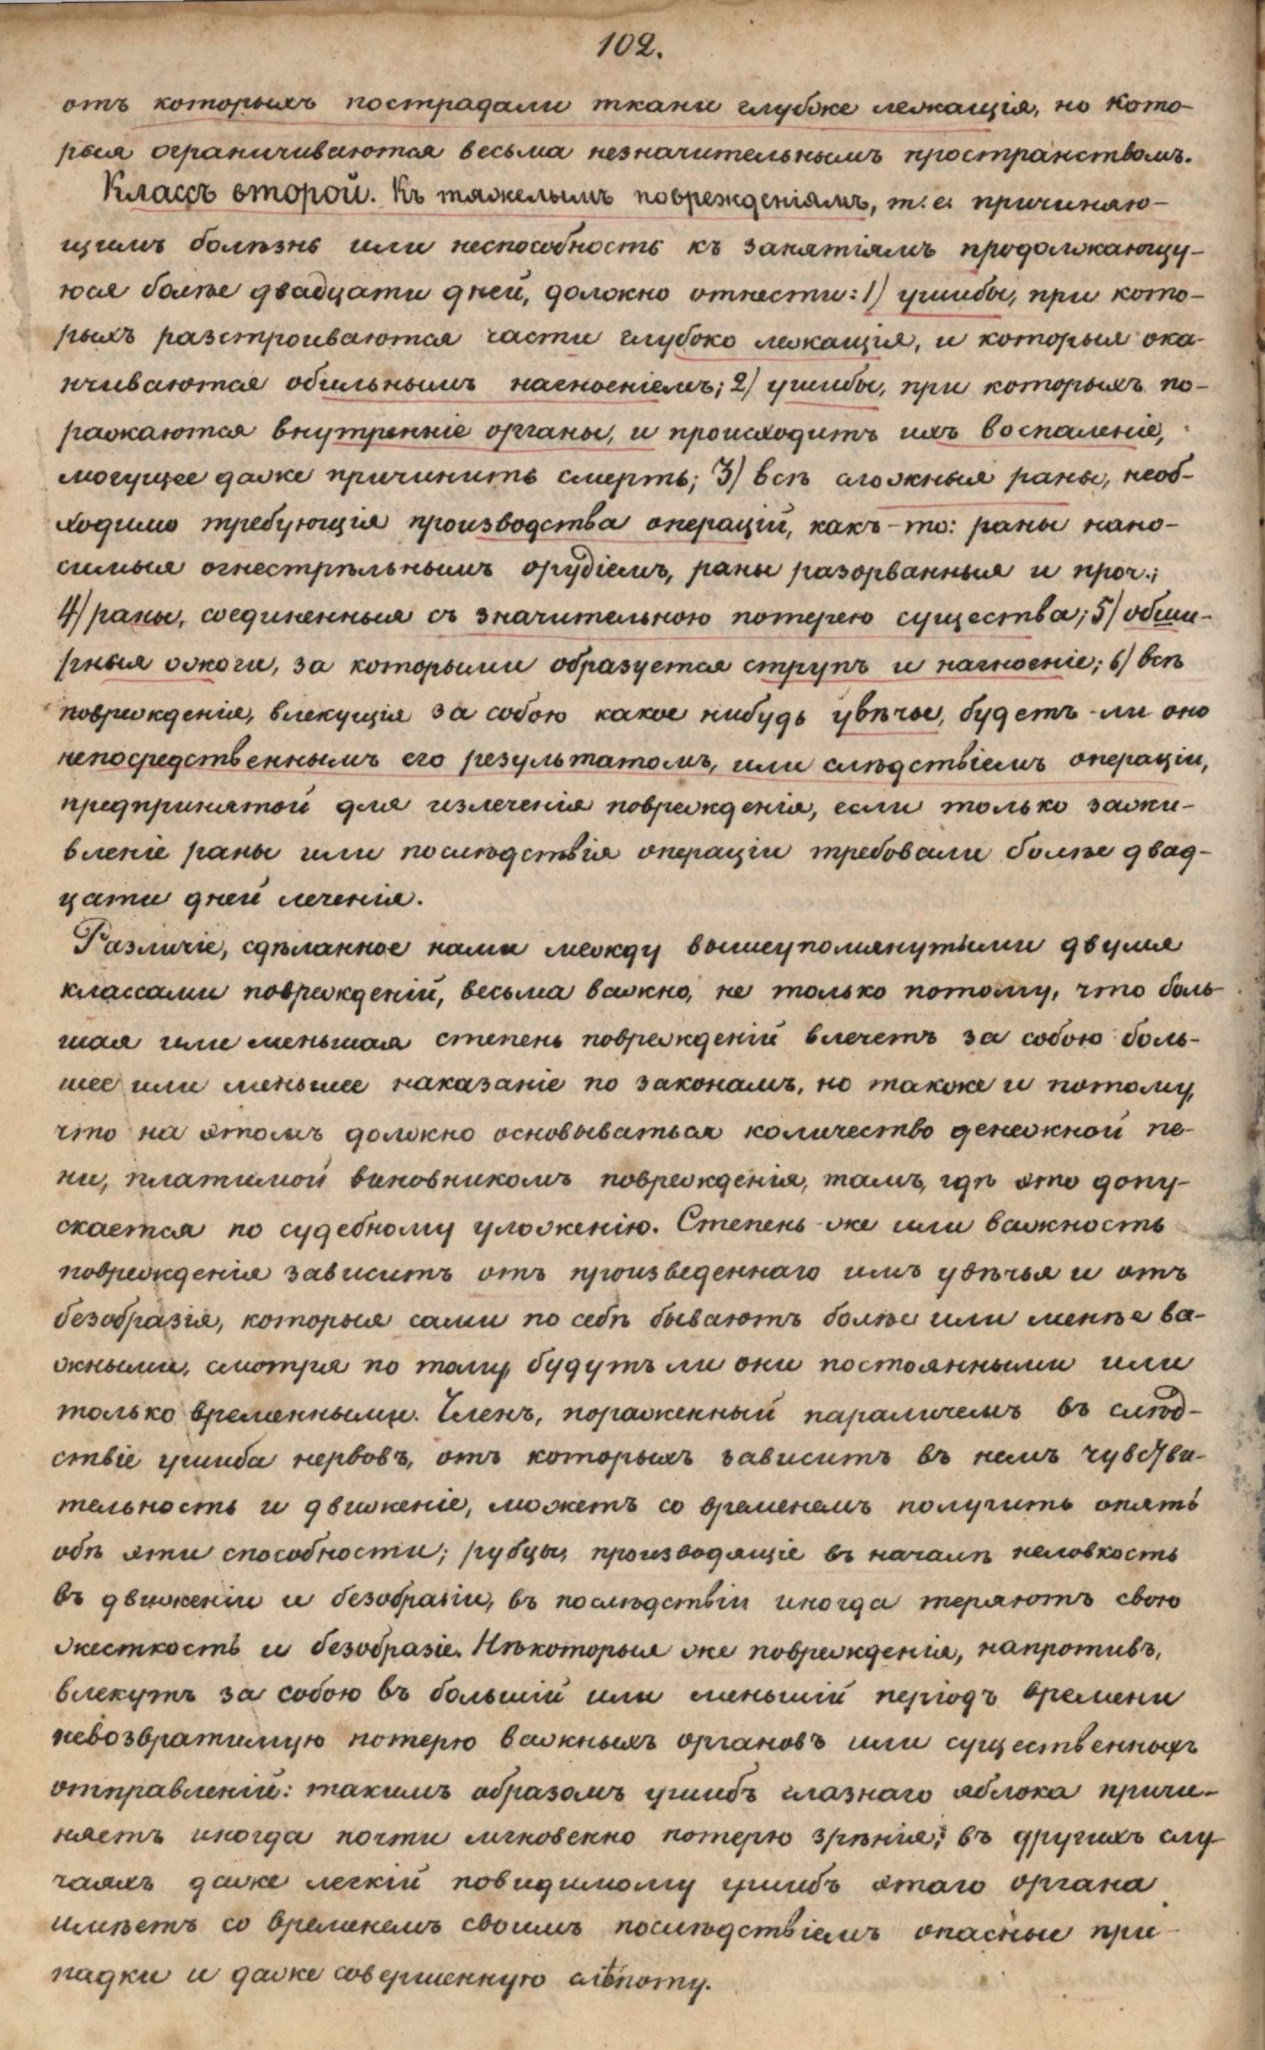 102.
отъ которыхъ пострадали ткани глубже лежащія, но кото-
рыя ограничиваются весьма незначительнымъ пространствомъ.
Классъ второй. Къ тяжелымъ поврежденіямъ, т. е. причиняю-
щимъ болѣзнь или неспособность къ занятіямъ продолжающу-
юся болѣе двадцати дней, должно отнести: 1) ушибы, при кото-
рыхъ разстроиваются части глубоко лежащія, и которыя ока-
нчиваются обильнымъ нагноеніемъ; 2) ушибы, при которыхъ по-
ражаются внутренніе органы, и происходитъ ихъ воспаленіе,
могущее даже причинить смерть; 3) всѣ сложныя раны, необ-
ходимо требующія производства операцій, какъ-то: раны нано-
симыя огнестрѣльнымъ орудіемъ, раны разорванныя и проч.;
4) раны, соединенныя съ значительною потерею существа; 5) обши-
рныя ожоги, за которыми образуется струпъ и нагноеніе; 6) всѣ
поврежденія, влекущія за собою какое нибудь увѣчье, будетъ-ли оно
непосредственнымъ его результатомъ, или слѣдствіемъ операціи,
предпринятой для излеченія поврежденія, если только зажи-
вленіе раны или послѣдствія операціи требовали болѣе двад-
цати дней леченія.
Различіе, сдѣланное нами между вышеупомянутыми двумя
классами поврежденій, весьма важно, не только потому, что боль-
шая или меньшая степень поврежденій влечетъ за собою боль-
шее или меньшее наказаніе по законамъ, но также и потому,
что на этомъ должно основываться количество денежной пе-
ни, платимой виновникомъ поврежденія, тамъ, гдѣ это допу-
скается по судебному уложенію. Степень-же или важность
поврежденія зависитъ отъ произведеннаго имъ увѣчья и отъ
безобразія, которыя сами по себѣ бываютъ болѣе или менѣе ва-
жными, смотря по тому, будутъ ли они постоянными или
только временными. Членъ, пораженный параличемъ въ слѣд-
ствіе ушиба нервовъ, отъ которыхъ зависитъ въ немъ чувстви-
тельность и движеніе, можетъ со временемъ получить опять
обѣ эти способности; рубцы, производящіе въ началѣ неловкость
въ движеніи и безобразіи, въ послѣдствіи иногда теряютъ свою
жесткость и безобразіе. Нѣкоторыя же поврежденія, напротивъ,
влекутъ за собою въ большій или меньшій періодъ времени
невозвратимую потерю важныхъ органовъ или существенныхъ
отправленій: такимъ образомъ ушибъ глазнаго яблока причи-
няетъ иногда почти мгновенно потерю зрѣнія; въ другихъ слу-
чаяхъ даже легкій повидимому ушибъ этаго органа
имѣетъ со временемъ своимъ послѣдствіемъ опасные при-
падки и даже совершенную слѣпоту.